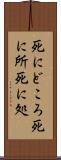 死にどころ死
に所死に処